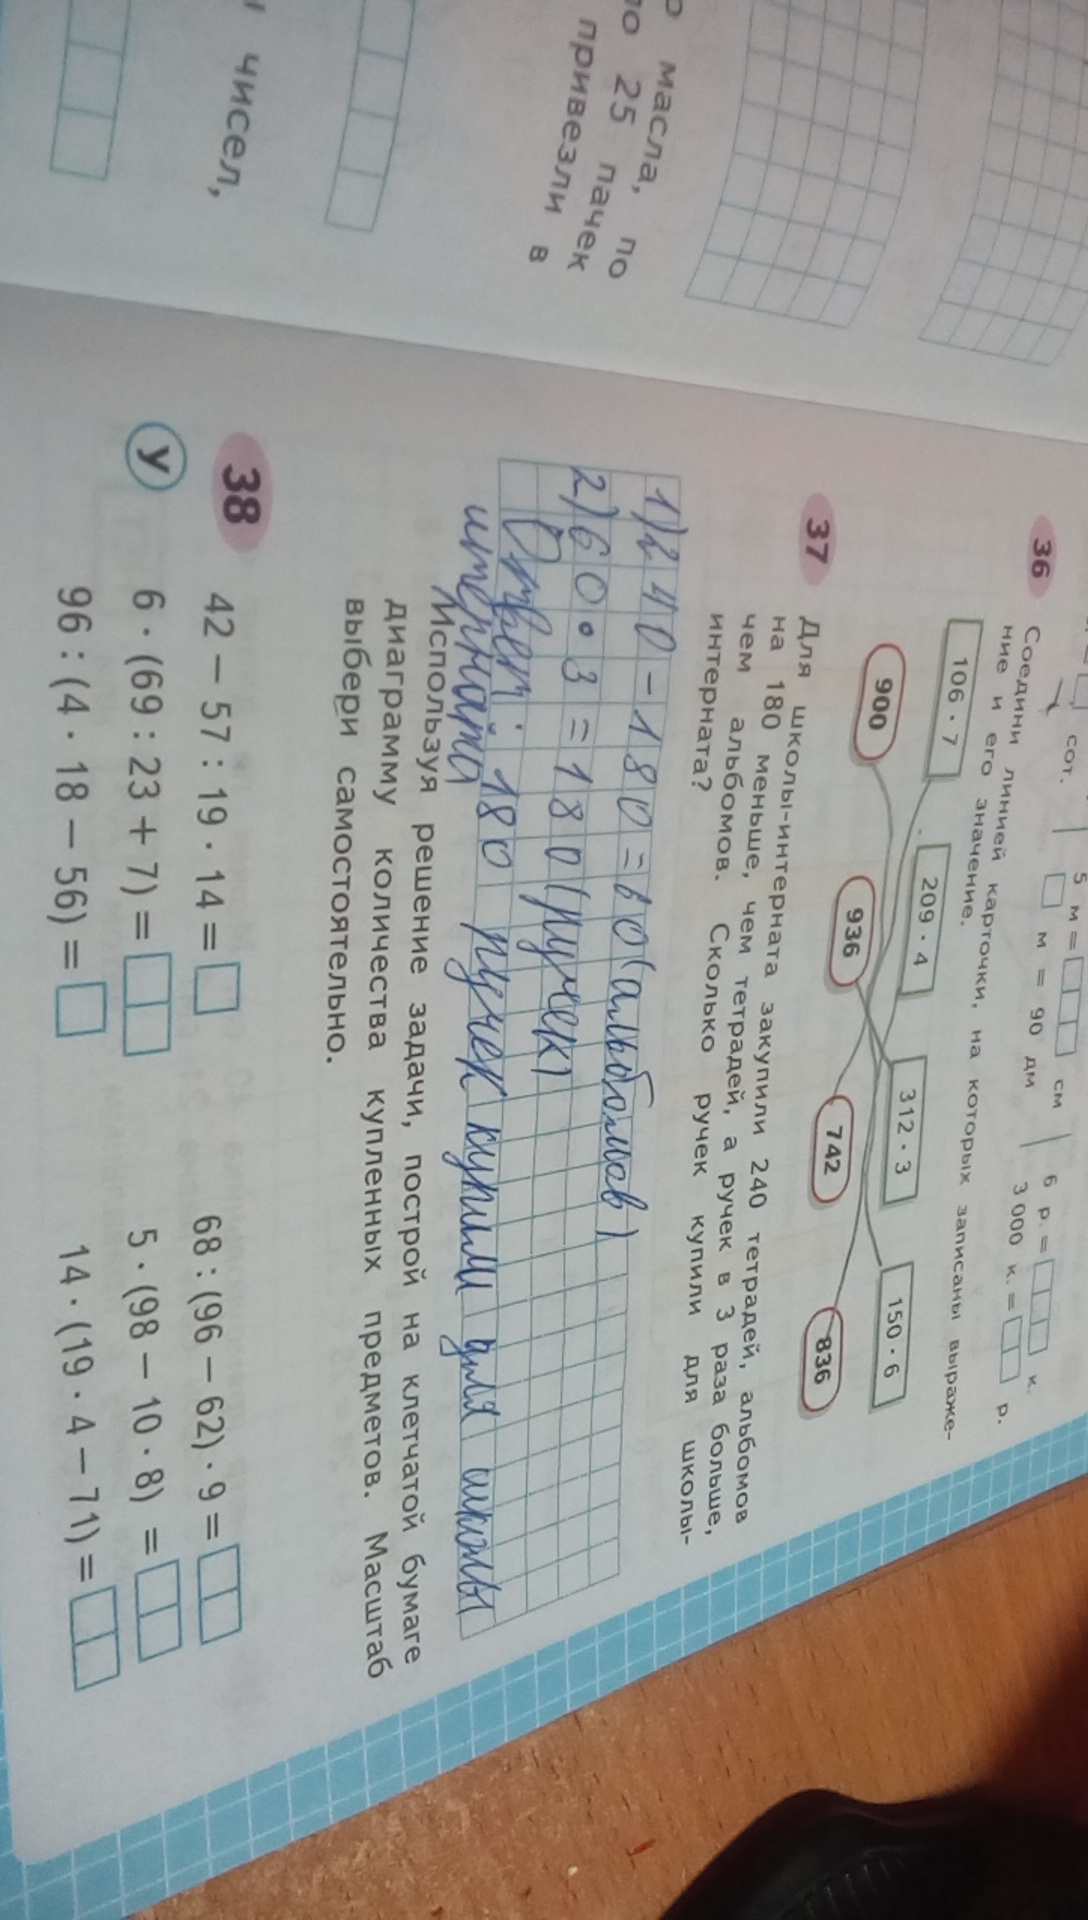 чисел,
масла, по
25 пачек
привезли в
сот. | 5 м = см | 6 р. = к.
м = 90 дм | 3 000 к. = р.
36 Соедини линией карточки, на которых записаны выраже-
ние и его значение.
106 · 7 209 · 4 312 · 3 150 · 6
900 936 742 836
37 Для школы-интерната закупили 240 тетрадей, альбомов
на 180 меньше, чем тетрадей, а ручек в 3 раза больше,
чем альбомов. Сколько ручек купили для школы-
интерната?
1) 240 - 180 = 60 (альбомов)
2) 60 · 3 = 180 (ручек)
Ответ: 180 ручек купили для школы
интерната
Используя решение задачи, построй на клетчатой бумаге
диаграмму количества купленных предметов. Масштаб
выбери самостоятельно.
38 42 – 57 : 19 · 14 = 68 : (96 – 62) · 9 =
У 6 · (69 : 23 + 7) = 5 · (98 – 10 · 8) =
96 : (4 · 18 – 56) = 14 · (19 · 4 – 71) =